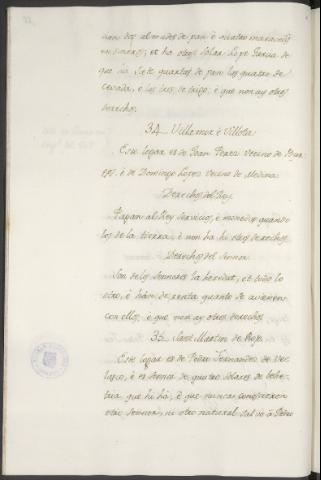 dan dos almudes de pan è quatro maravedis
en dineros, et ha otros Solar Lope Garcia de
que ha siete quartos de pan los quatro de
cevada, e los tres de trigo, è que non ay otros
derechos.
34. Villamor è Villota.
Este logar es de Joan Perez vecino de Bur-
gos, è de Domingo Lopez vecino de Medina.
Derechos del Rey.
Pagan al Rey servicios, è monedas quando
los de la tierra, è non ha hi otros derechos.
Derechos del Sennor.
Son de los Sennores la heredat, et todo lo
otro, è hàn de renta quanto se avienen
con ellos, è que non ay otros derechos.
35. Sant Martin de Rioja.
Este logar es de Pedro Fernandez de Ve-
lasco, è es Sennor de quatro Solares de behe-
tria que hi hà, è que nunca conoscieron
otro Sennor, ni otro natural salvo à Pedro